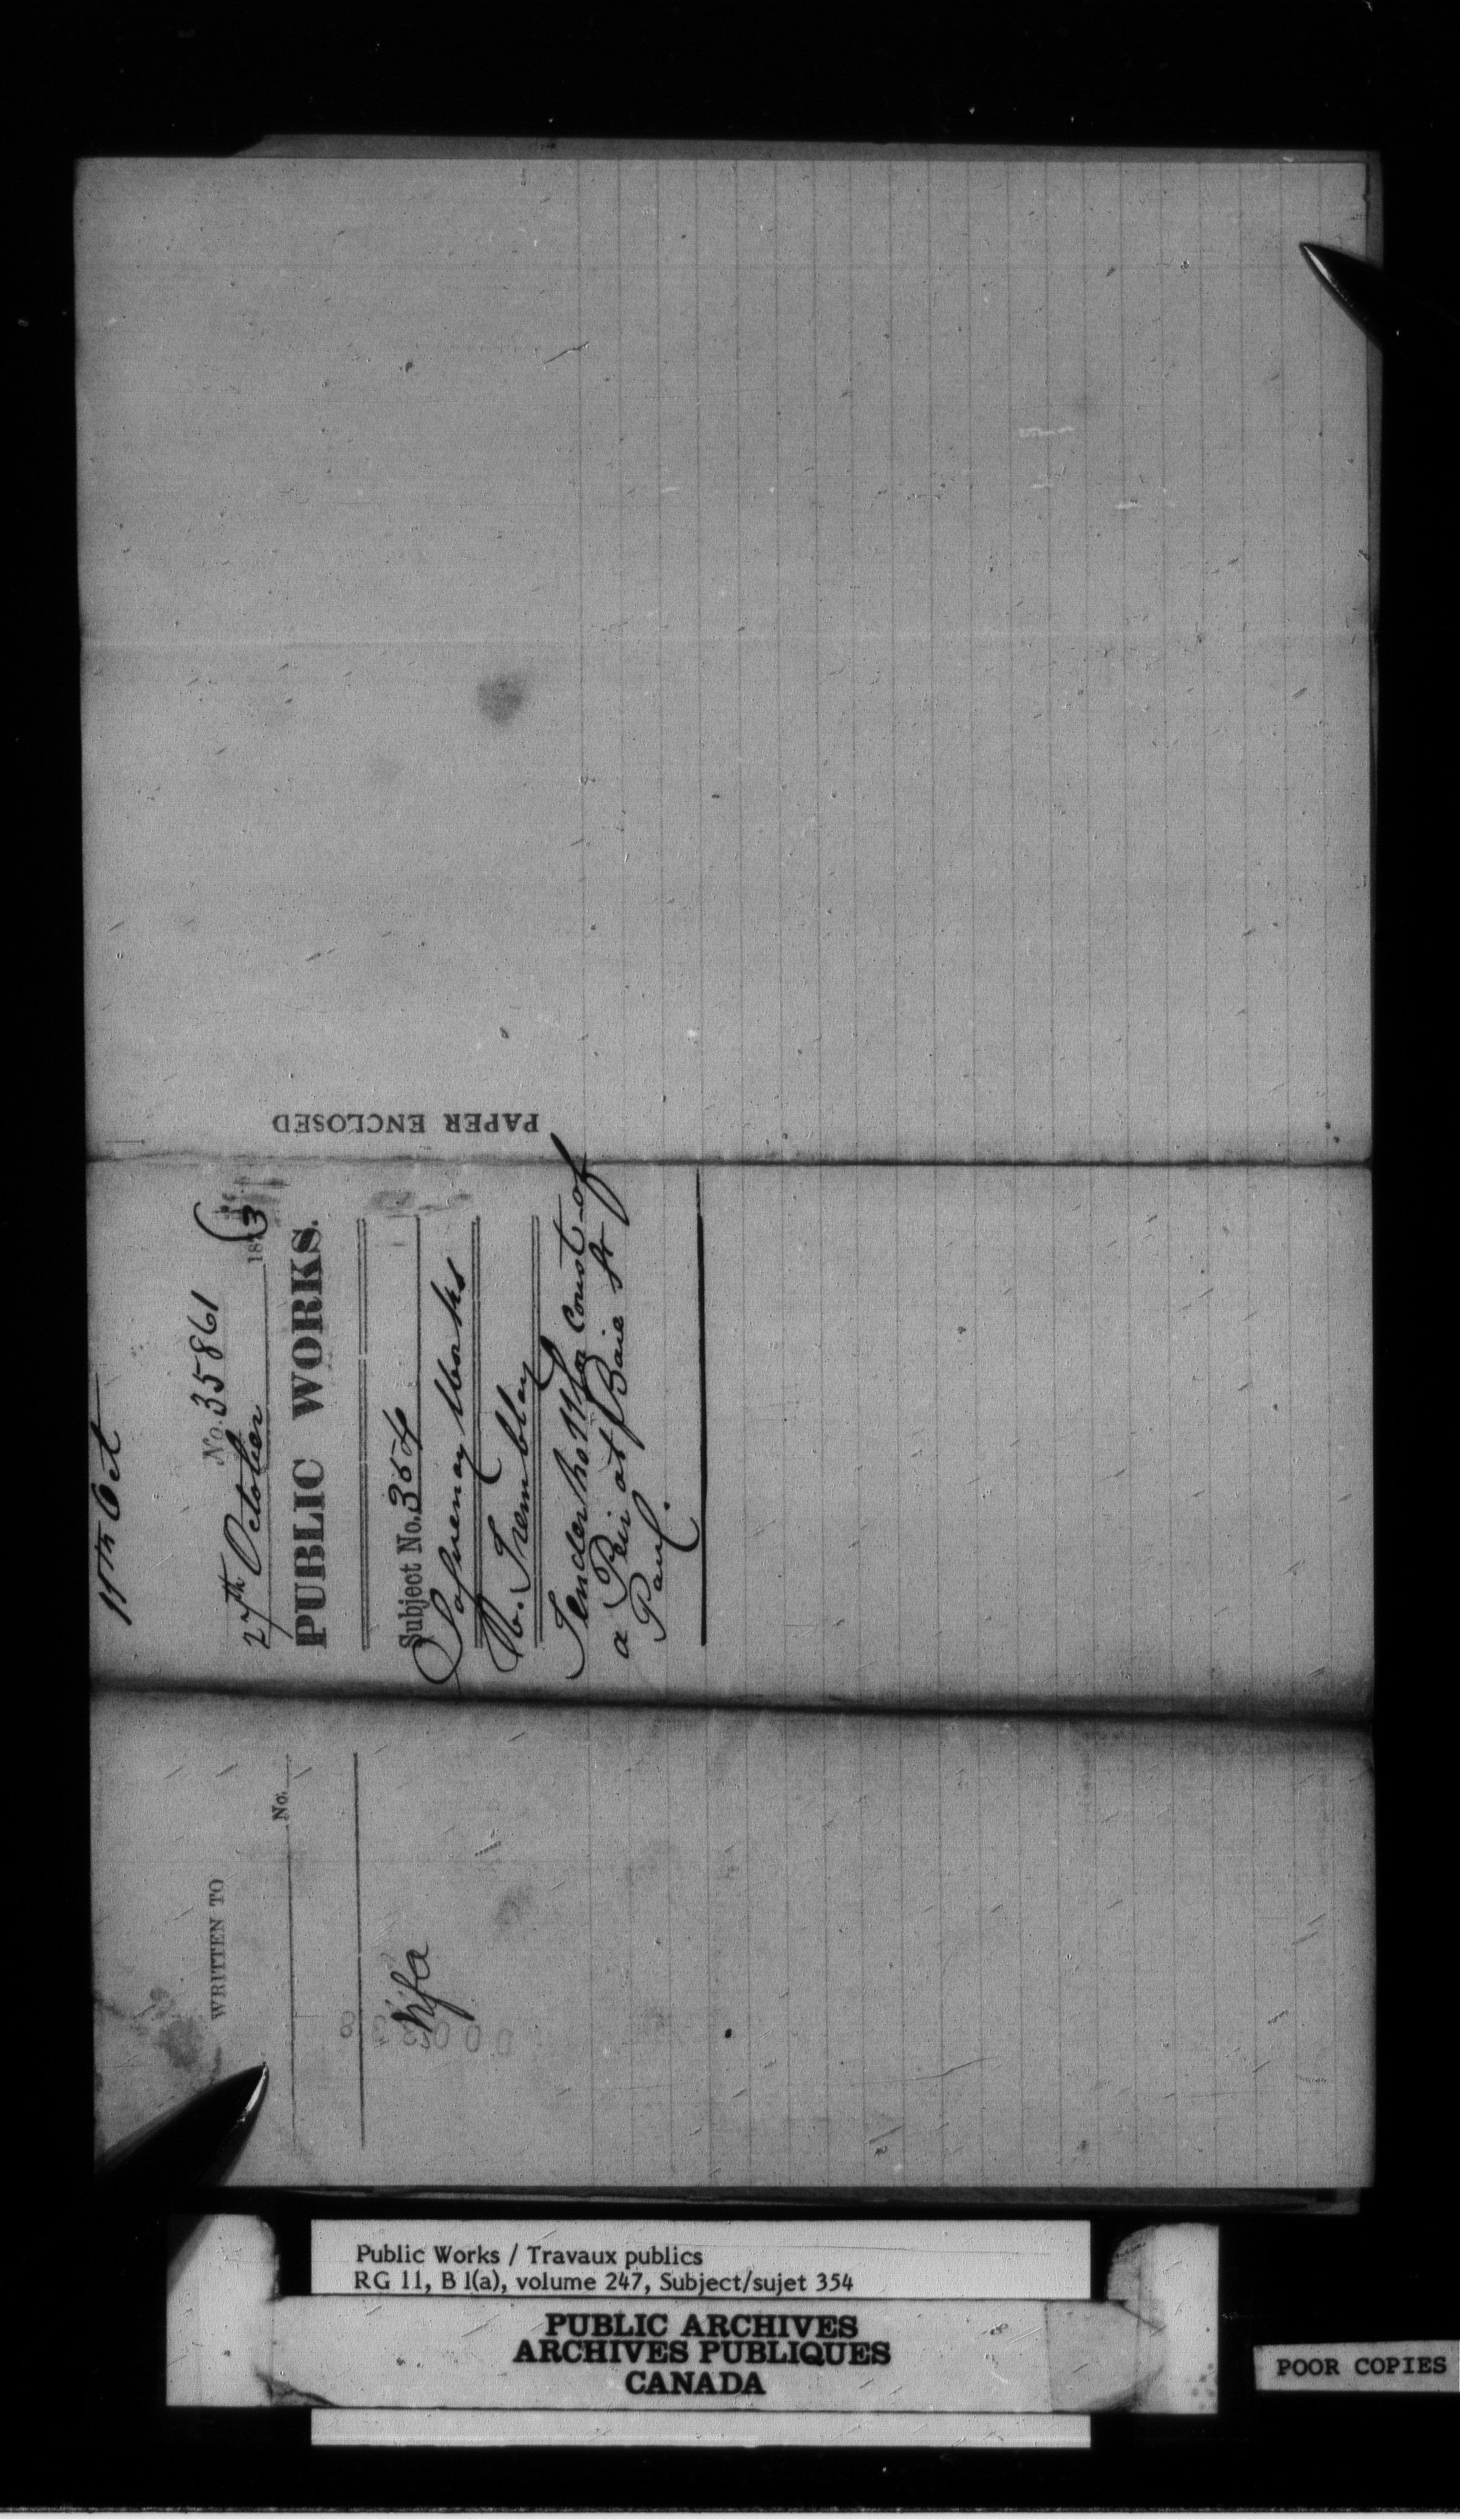 PAPER ENCLOSED
11th Oct
No. 35861
27th October 1873
PUBLIC WORKS.
Subject No. 354
Saguenay Works
N. Tremblay
Tender No 11 for Const of
a Peir at Baie St
Paul.
WRITTEN TO
No.
Nfa
Public Works / Travaux publics
RG 11, B 1(a), volume 247, Subject/sujet 354
PUBLIC ARCHIVES
ARCHIVES PUBLIQUES
CANADA
POOR COPIES